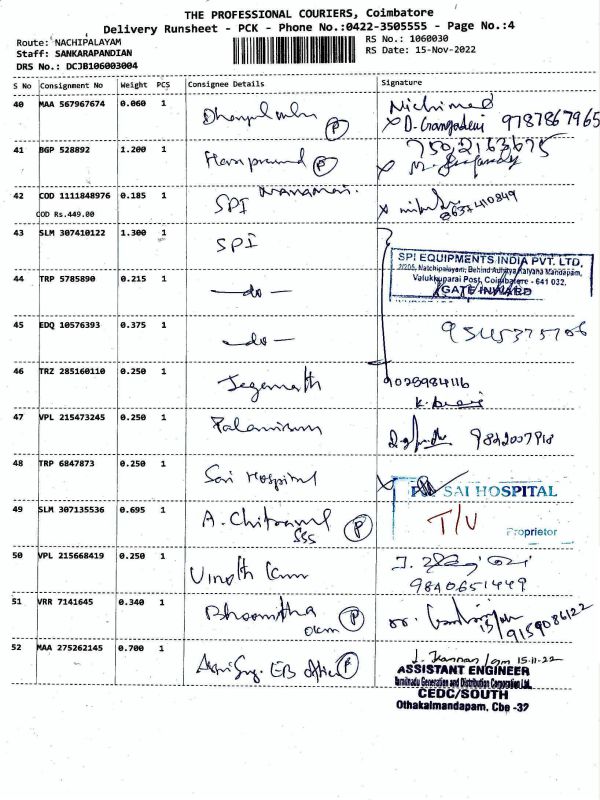 THE PROFESSIONAL COURIERS, Coimbatore
Delivery Runsheet - PCK - Phone No.:0422-3505555 - Page No.:4
Route: NACHIPALAYAM
RS No.: 1060030
Staff: SANKARAPANDIAN
RS Date: 15-Nov-2022
DRS No.: DCJB106003004
S No Consignment No Weight PCS Consignee Details Signature
40 MAA 567967674 0.060 1 P
9787867965
41 BGP 528892 1.200 1 P
7502163675
42 COD 1111848976 0.185 1 SPI
COD Rs.449.00
8637410849
43 SLM 307410122 1.300 1 SPI
SPI EQUIPMENTS INDIA PVT. LTD,
2/205, Natchipalayam, Behind Adhitya Kalyana Mandapam,
Valukkuparai Post, Coimbatore - 641 032.
GATE INWARD
44 TRP 5785890 0.215 1 — do —
45 EDQ 10576393 0.375 1 — do —
46 TRZ 285160110 0.250 1 Jegannath
9028984116
47 VPL 215473245 0.250 1
9842007918
48 TRP 6847873 0.250 1 Sai Hospital
SAI HOSPITAL
49 SLM 307135536 0.695 1 A. Chitraml P
SSS
T/U
Proprietor
50 VPL 215668419 0.250 1 Vinoth
9840651449
51 VRR 7141645 0.340 1 Bhoomitha P
9159086122
52 MAA 275262145 0.700 1 EB office P
J. Kannan 15.11.22
ASSISTANT ENGINEER
Tamilnadu Generation and Distribution Corporation Ltd.
CEDC/SOUTH
Othakalmandapam, Cbe -32